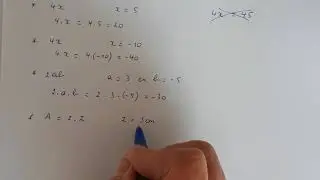 * 4x x = 5 4x = 45
4.x = 4.5 = 20
* 4x x = -10
4.x = 4.(-10) = -40
* 2ab a = 3 en b = -5
2.a.b = 2.3.(-5) = -30
* A = z.z z = 3cm